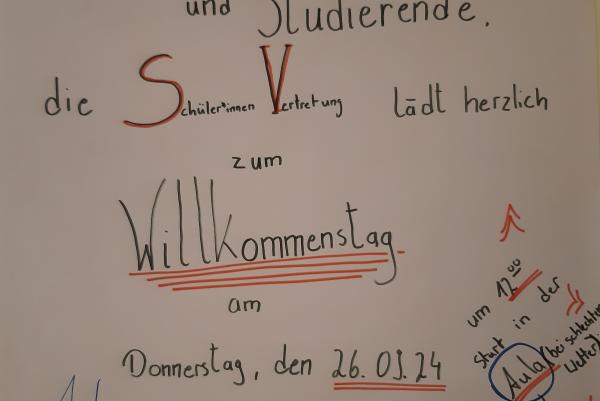 und Studierende,
die Schüler*innen Vertretung lädt herzlich
zum
Willkommenstag
am
Donnerstag, den 26.09.24
um 12⁰⁰
Start in der
Aula (bei schlechtem
Wetter)